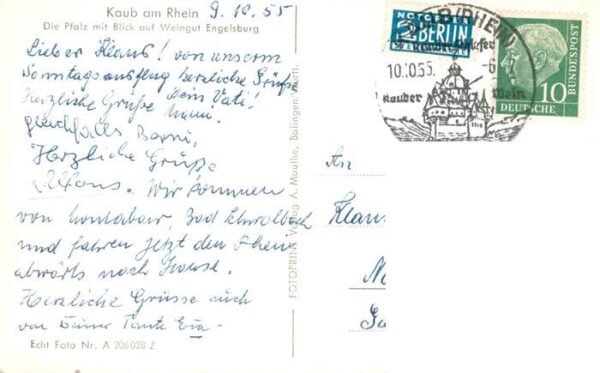 Kaub am Rhein 9.10.55
Die Pfalz mit Blick auf Weingut Engelsburg
Lieber Klaus! von unserm
Sonntagsausflug herzliche Grüße
Dein Vati!
Herzliche Grüße
gleichfalls
Herzliche Grüße
Alfons. Wir kommen
von Bad Schwalbach
und fahren jetzt den Rhein
abwärts nach Hause.
Herzliche Grüsse auch
von Deiner Tante Eva-
Echt Foto Nr. A 206028 Z
FOTOPRINT Verlag A. Mauthe, Balingen/Württ.
NOTOPFER
2 BERLIN
KAUB/RHEIN
10.10.55. -6
Kauber Wein
DEUTSCHE
BUNDESPOST
10
An
Klaus